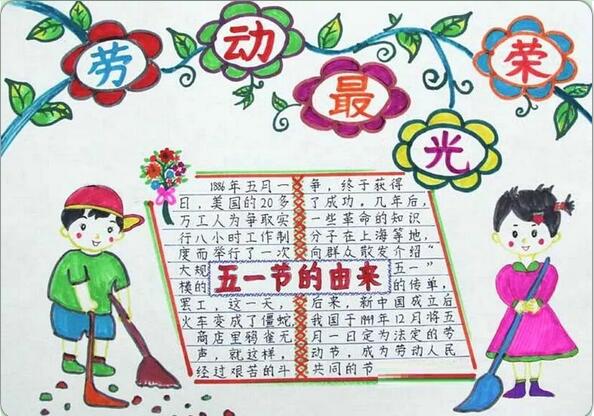 劳动最光荣
五一节的由来
1886年五月一
日，美国的20多
万工人为争取实
行八小时工作制
度而举行了一次
大规
模的
罢工，这一天，
火车变成了僵蛇，
商店里鸦雀无
声，就这样，
经过艰苦的斗
争，终于获得
了成功，几年后，
一些革命的知识
分子在上海等地，
向群众散发介绍“
五一”
的传单，
后来，新中国成立后
我国于1949年12月将五
月一日定为法定的劳
动节，成为劳动人民
共同的节